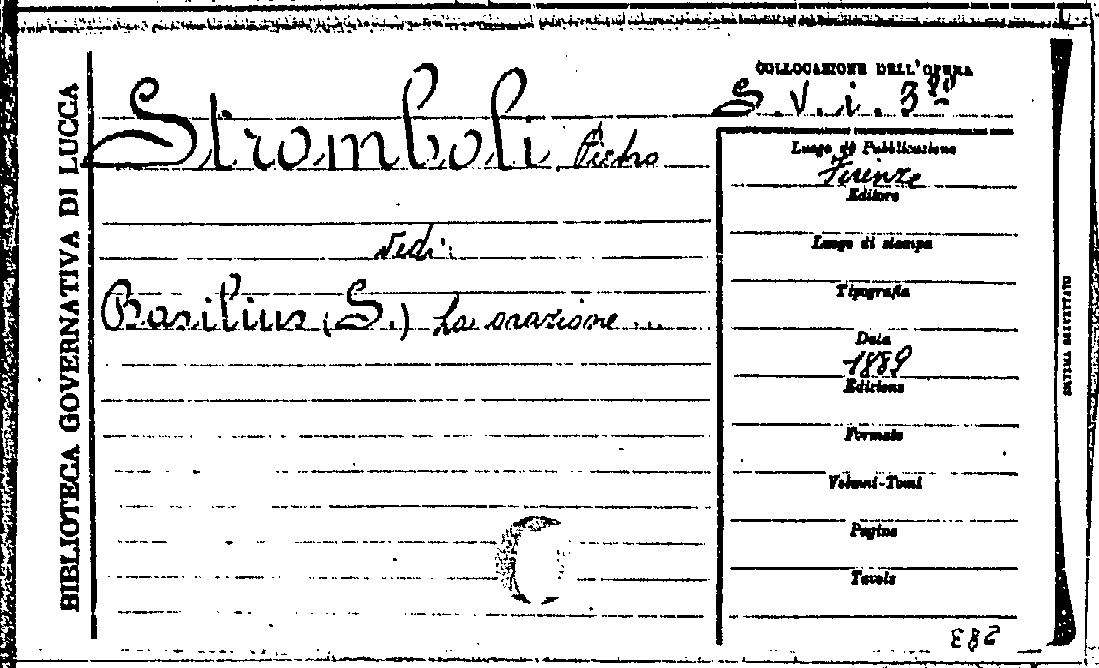 BIBLIOTECA GOVERNATIVA DI LUCCA
Stromboli Pietro
Vedi:
Basilius (S.) La orazione ...
COLLOCAZIONE DELL'OPERA
S. V. i. 3
Luogo di Pubblicazione
Firenze
Editore
Luogo di stampa
Tipografia
Data
1889
Edizione
Formato
Volumi-Tomi
Pagine
Tavole